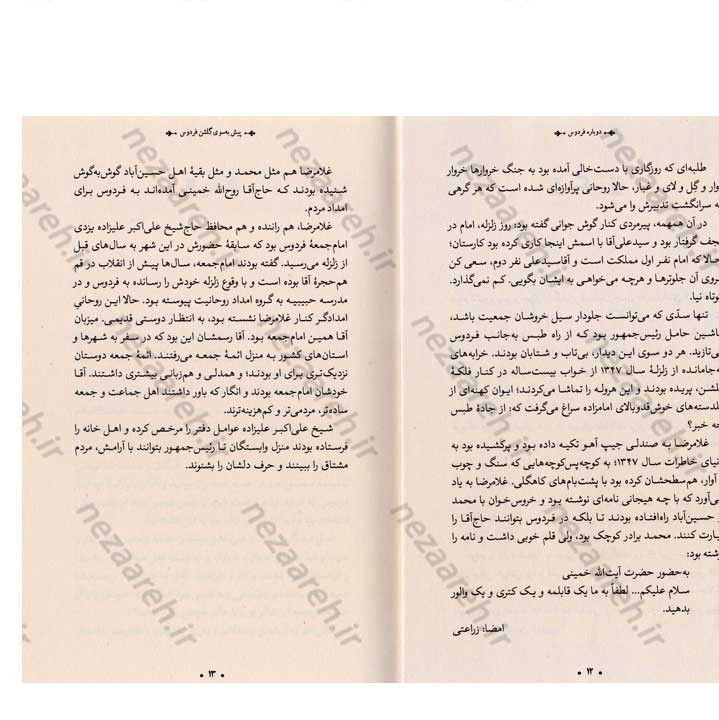 دوباره فردوس
طلبه‌ای که روزگاری با دست‌خالی آمده بود به جنگ خروارها خروار
آوار و گِل و لای و غبار، حالا روحانی پرآوازه‌ای شده است که هر گرهی
به سرانگشت تدبیرش وا می‌شود.
در آن همهمه، پیرمردی کنار گوش جوانی گفته بود: روز زلزله، امام در
نجف گرفتار بود و سیدعلی‌آقا با اسمش اینجا کاری کرده بود کارستان؛
حالا که امام نفر اول مملکت است و آقاسیدعلی نفر دوم، سعی کن
بروی آن جلوترها و هرچه می‌خواهی به ایشان بگویی. کم نمی‌گذارد.
کوتاه نیا.
تنها سدّی که می‌توانست جلودار سیل خروشان جمعیت باشد،
ماشین حامل رئیس‌جمهور بود که از راه طبس به‌جانب فردوس
می‌تازید. هر دو سوی این دیدار، بی‌تاب و شتابان بودند. خرابه‌های
به‌جامانده از زلزلهٔ سال ۱۳۴۷ از خواب بیست‌ساله در کنار فلکهٔ
گلشن، پریده بودند و این هروله را تماشا می‌کردند؛ ایوان کهنه‌ای از
گلدسته‌های خوش‌قدوبالای امامزاده سراغ می‌گرفت که: از جادهٔ طبس
چه خبر؟
غلامرضا به صندلی جیپ آهو تکیه داده بود و پرکشیده بود به
دنیای خاطرات سال ۱۳۴۷؛ به کوچه‌پس‌کوچه‌هایی که سنگ و چوب
و آوار، هم‌سطحشان کرده بود با پشت‌بام‌های کاهگلی. غلامرضا به یاد
می‌آورد که با چه هیجانی نامه‌ای نوشته بود و خروس‌خوان با محمد
از حسین‌آباد راه‌افتاده بودند تا بلکه در فردوس بتوانند حاج‌آقا را
زیارت کنند. محمد برادر کوچک بود، ولی قلم خوبی داشت و نامه را
نوشته بود:
به‌حضور حضرت آیت‌الله خمینی
سلام علیکم... لطفاً به ما یک قابلمه و یک کتری و یک والور
بدهید.
امضا: زراعتی
۱۲
پیش به‌سوی گلشن فردوس
غلامرضا هم مثل محمد و مثل بقیهٔ اهل حسین‌آباد گوش‌به‌گوش
شنیده بودند که حاج‌آقا روح‌الله خمینی آمده‌اند به فردوس برای
امداد مردم.
غلامرضا، هم راننده و هم محافظ حاج‌شیخ علی‌اکبر علیزاده یزدی
امام‌جمعهٔ فردوس بود که سابقهٔ حضورش در این شهر به سال‌های قبل
از زلزله می‌رسید. گفته بودند امام‌جمعه، سال‌ها پیش از انقلاب در قم
هم‌حجرهٔ آقا بوده است و با وقوع زلزله خودش را رسانده به فردوس و در
مدرسه حبیبیه به گروه امداد روحانیت پیوسته بود. حالا این روحانیِ
امدادگر کنار غلامرضا نشسته بود، به انتظار دوستی قدیمی. میزبان
آقا همین امام‌جمعه بود. آقا رسمشان این بود که در سفر به شهرها و
استان‌های کشور به منزل ائمهٔ جمعه می‌رفتند. ائمهٔ جمعه دوستان
نزدیک‌تری برای او بودند؛ و همدلی و هم‌زبانی بیشتری داشتند. آقا
خودشان امام‌جمعه بودند و انگار که باور داشتند اهل جماعت و جمعه
ساده‌تر، مردمی‌تر و کم‌هزینه‌ترند.
شیخ علی‌اکبر علیزاده عوامل دفتر را مرخص کرده و اهل خانه را
فرستاده بودند منزل وابستگان تا رئیس‌جمهور بتوانند با آرامش، مردم
مشتاق را ببینند و حرف دلشان را بشنوند.
۱۳
nezaareh.ir